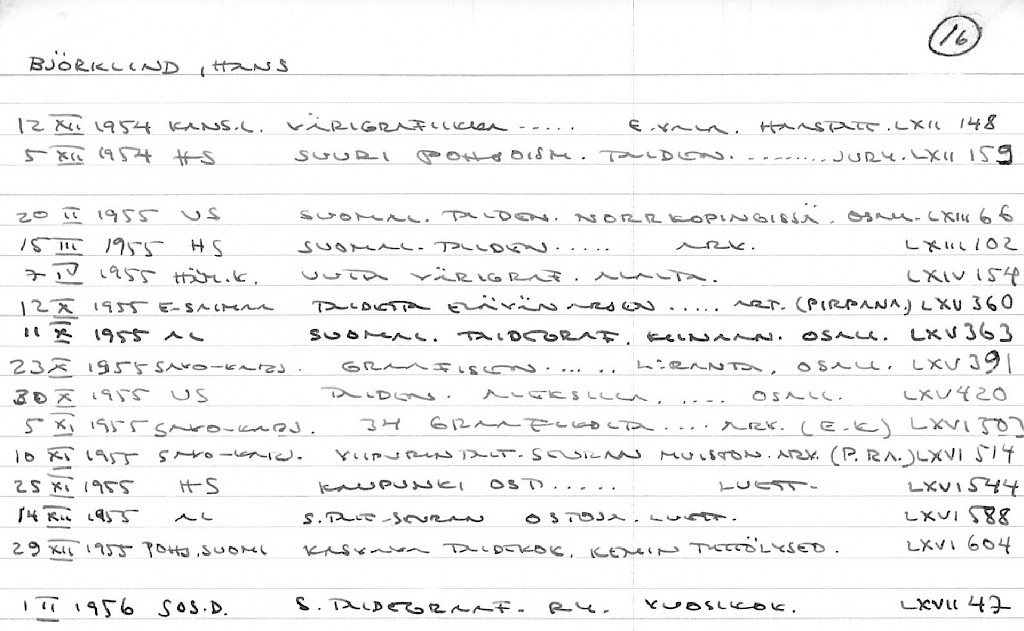 16
BJÖRKLUND, HANS
12 XII 1954 KANS.L. VÄRIGRAFIIKKAA ..... E.VALA. HAASTATT. LXII 148
5 XII 1954 HS SUURI POHJOISM. TAIDEN. ........ JURY. LXII 159
20 II 1955 US SUOMAL. TAIDEN. NORRKÖPINGISSÄ. OSALL. LXIII 66
15 III 1955 HS SUOMAL. TAIDEN ..... ARK. LXIII 102
7 IV 1955 HÄM.K. UUTTA VÄRIGRAF. ALALTA. LXIV 154
12 X 1955 E-SAIMAA TAIDETTA ELÄVÄN ..... ART. (PIRPANA.) LXV 360
11 X 1955 AL SUOMAL. TAIDEGRAF. OSALL. LXV 363
23 X 1955 SAVO-KARJ. GRAAFISEN ..... L:RANTA, OSALL. LXV 391
30 X 1955 US TAIDEN. ALEKSILLA, .... OSALL. LXV 420
5 XI 1955 SAVO-KARJ. 34 GRAAFIKOLTA .... ARK. (E.K) LXVI 507
10 XI 1955 SAVO-KARJ. VIIPURIN TAIT. SEURAN MUISTON. ARK. (P.RA.) LXVI 514
25 XI 1955 HS KAUPUNKI OSTI ..... LUETT. LXVI 544
14 XII 1955 AL S.TAIT-SEURAN OSTOJA. LUETT. LXVI 588
29 XII 1955 POHJ.SUOMI KASVAVA TAIDEKOK. KEMIN LXVI 604
1 II 1956 SOS.D. S. TAIDEGRAAF. R.Y. VUOSIKOK. LXVII 47